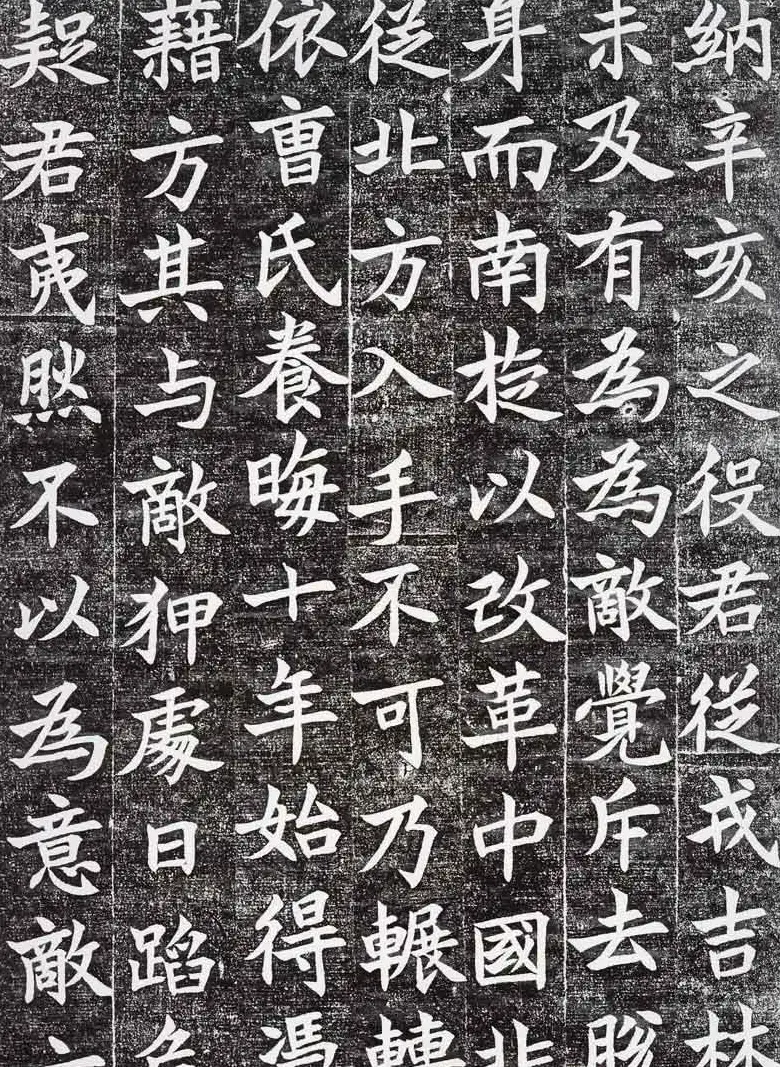 納辛亥之役君從戎吉林
未及有為為敵覺斥去脫
身而南旋以改革中國非
從北方入手不可乃輾轉
依曹氏養晦十年始得馮
藉方其与敵狎處日蹈危
契君夷然不以為意敵